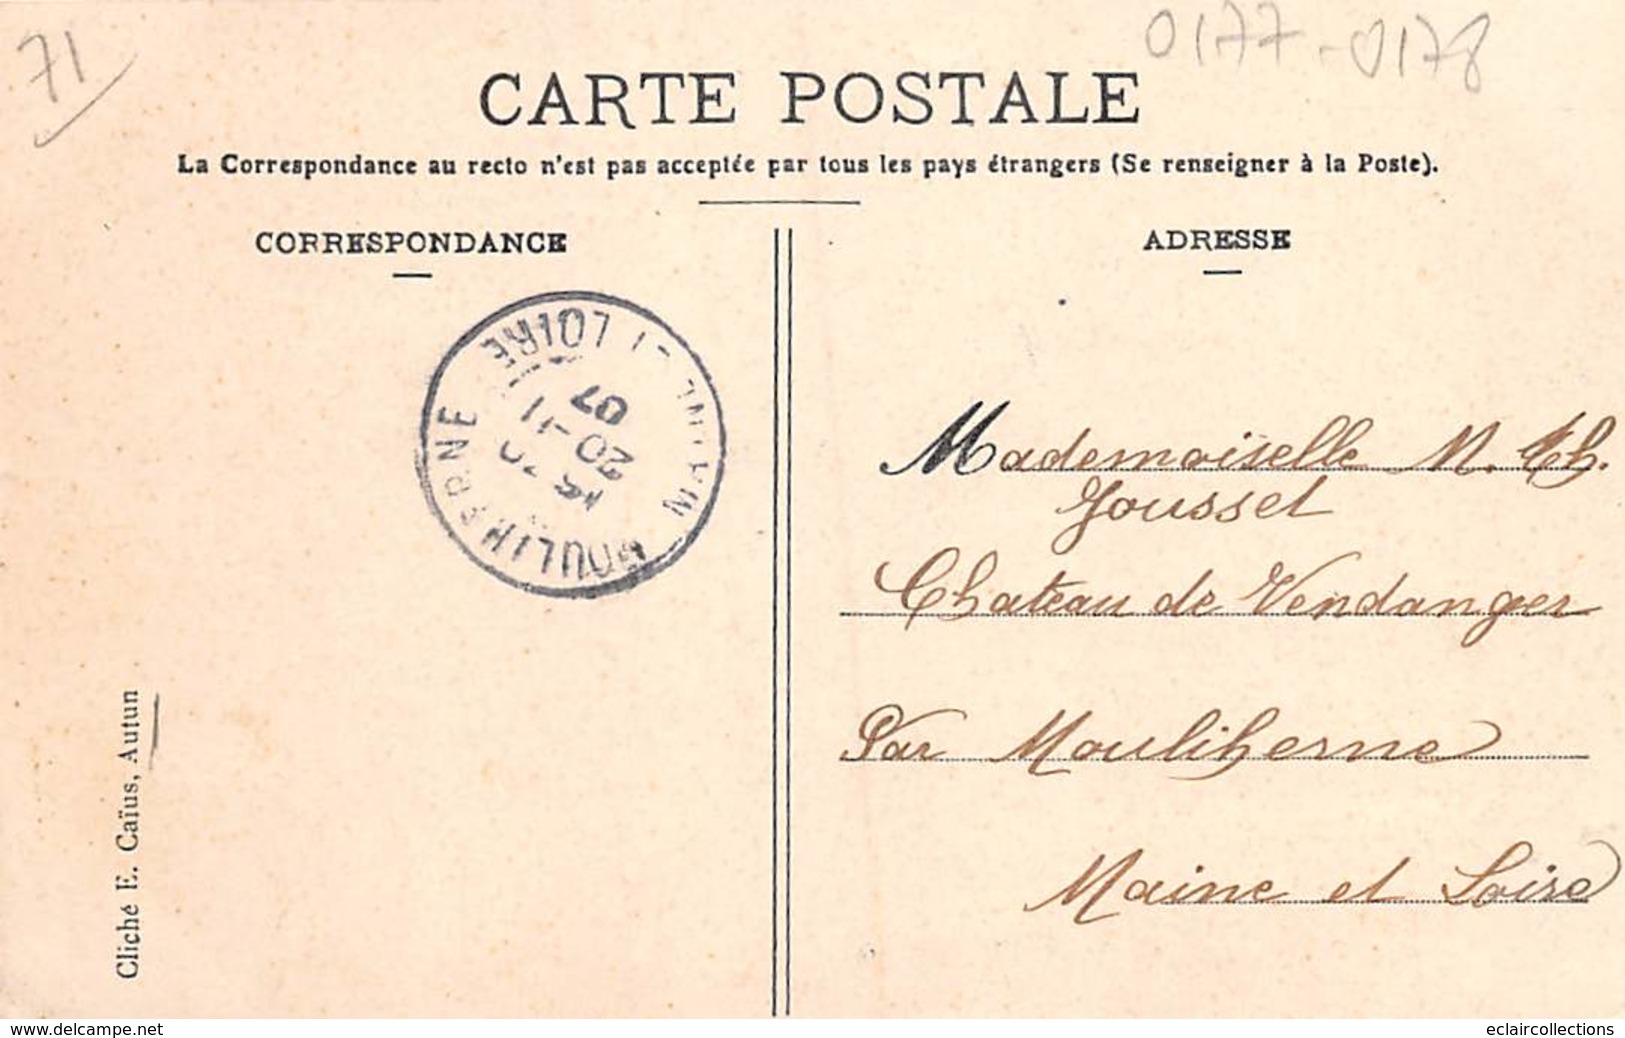 71
0177-0178
CARTE POSTALE
La Correspondance au recto n'est pas acceptée par tous les pays étrangers (Se renseigner à la Poste).
CORRESPONDANCE
ADRESSE
MOULIHERNE
MAINE-ET-LOIRE
20-11
07
Mademoiselle M. Th.
Jousset
Chateau de Vendanger
Par Mouliherne
Maine et Loire
Cliché E. Caïus, Autun
www.delcampe.net
eclaircollections